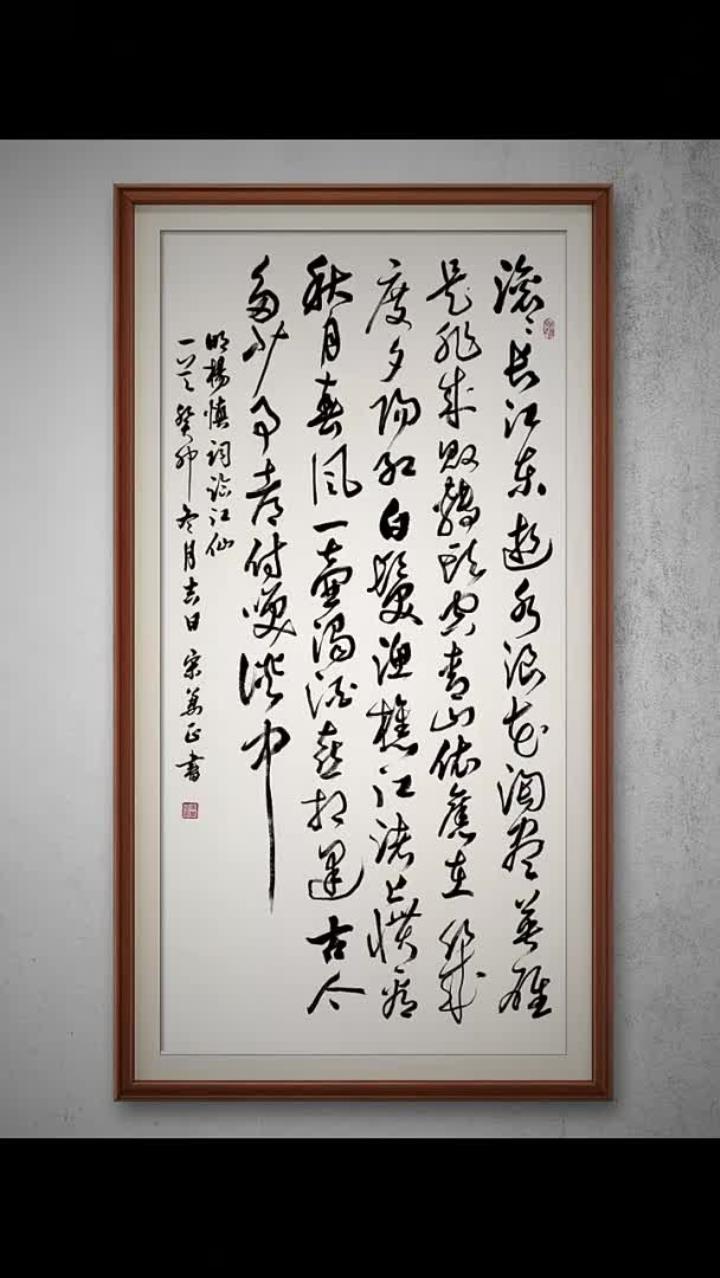 滚〻长江东逝水浪花淘尽英雄
是非成败转头空青山依舊在幾
度夕阳红白髮渔樵江渚上惯看
秋月春风一壶浊酒喜相逢古今
多少事都付咲谈中
明楊慎词临江仙
一首癸卯冬月吉日宋正書